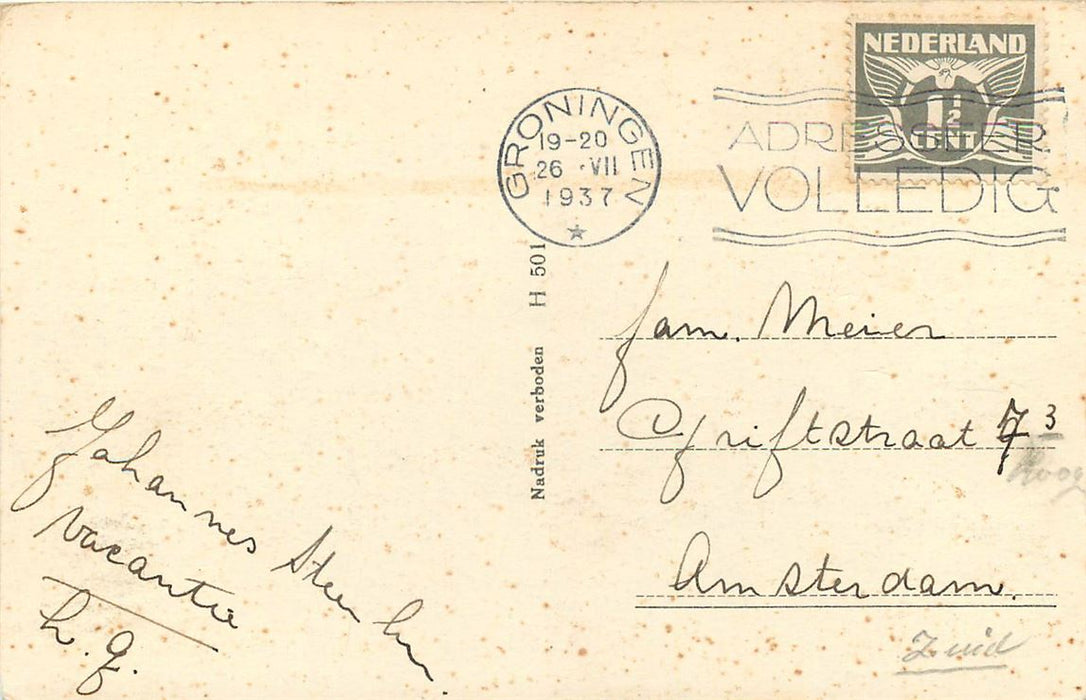 NEDERLAND
1½
CENT
GRONINGEN
19-20
26 · VII
1937
ADRESSEER
VOLLEDIG
Nadruk verboden H 501
fam. Meier
Griftstraat 7 3
hoog
Amsterdam.
Zuid
Johannes Steen
vacantie
h. g.